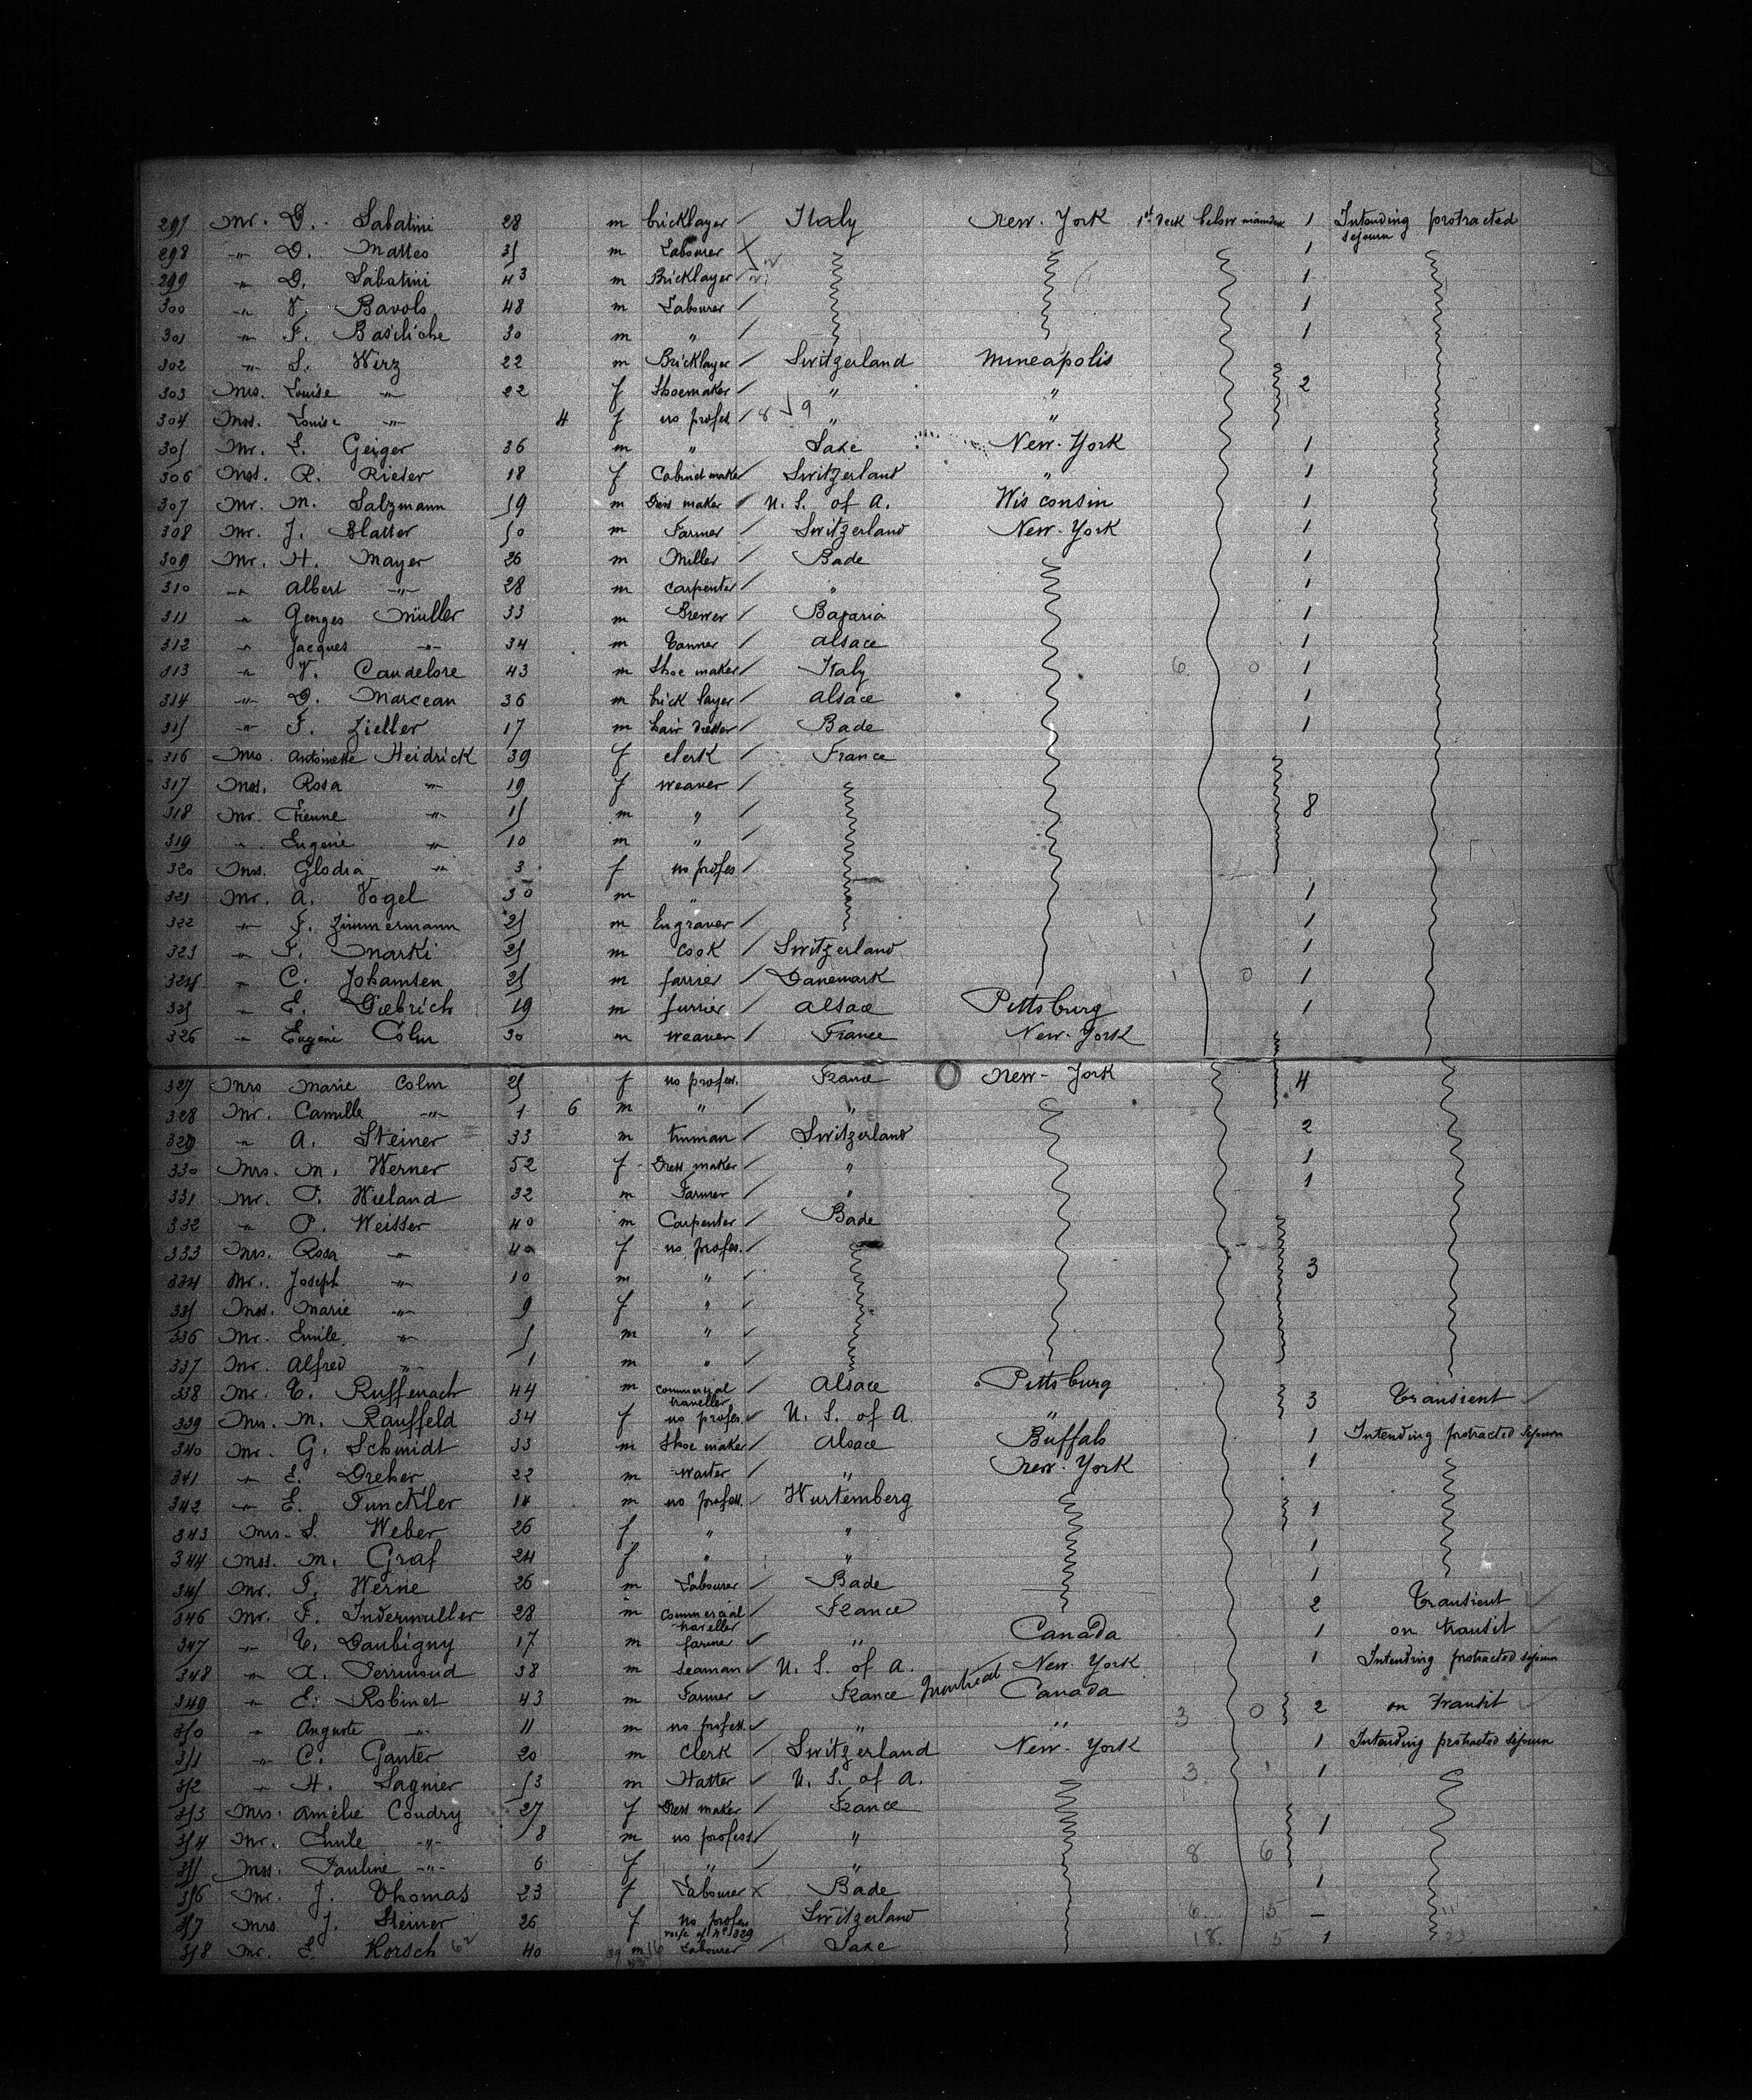 297 Mr. D. Sabatini 28 m bricklayer Italy New-York 1st deck below maindeck 1 Intending protracted sejourn
298 -"- D. Matteo 35 m Labourer X 1
299 -"- D. Sabatini 43 m Bricklayer 1
300 -"- V. Bavolo 48 m Labourer 1
301 -"- F. Basiliche 30 m " 1
302 -"- S. Wirz 22 m Bricklayer Switzerland Mineapolis
303 Mrs. Louise -"- 22 f Shoemaker " " 2
304 Mss. Louise -"- 4 f no profes. 8 9 " "
305 Mr. E. Geiger 36 m " Saxe New-York 1
306 Mss. R. Rieder 18 f Cabinet maker Switzerland " 1
307 Mr. M. Salzmann 59 m Dress maker U. S. of A. Wisconsin 1
308 Mr. J. Blatter 50 m Farmer Switzerland New-York 1
309 Mr. H. Mayer 26 m Miller Bade 1
310 -"- Albert -"- 28 m Carpenter " 1
311 -"- Georges Müller 33 m Brewer Bavaria 1
312 -"- Jacques -"- 34 m Tanner Alsace 1
313 -"- V. Candelore 43 m Shoe maker Italy 6 0 1
314 -"- D. Marcean 36 m brick layer Alsace 1
315 -"- F. Zieller 17 m hair dresser Bade 1
316 Mrs. Antoinette Heidrick 39 f clerk France
317 Mss. Rosa -"- 19 f weaver
318 Mr. Etienne -"- 15 m " 8
319 -"- Eugene -"- 10 m "
320 Mss. Glodia -"- 3 f no profes.
321 Mr. A. Vogel 30 m " 1
322 -"- F. Zimmermann 25 m Engraver 1
323 -"- F. Marki 25 m Cook Switzerland 1
324 -"- C. Johansen 25 m farrier Danemark 1 0 1
325 -"- E. Diebrich 19 m furrier Alsace Pittsburg 1
326 -"- Eugène Colm 30 m weaver France New-York
327 Mrs Marie Colm 25 f no profes. France New-York 4
328 Mr. Camille -"- 1 6 m " "
329 -"- A. Steiner 33 m tinman Switzerland 2
330 Mrs. M. Werner 52 f Dress maker " 1
331 Mr. P. Wieland 32 m Farmer " 1
332 -"- P. Weisser 40 m Carpenter Bade
333 Mrs. Rosa -"- 40 f no profes.
334 Mr. Joseph -"- 10 m " 3
335 Mss. Marie -"- 9 f "
336 Mr. Emile -"- 5 m "
337 Mr. Alfred -"- 1 m "
338 Mr. E. Ruffenach 44 m commercial traveller Alsace Pittsburg 3 Transient
339 Mrs. M. Rauffeld 34 f no profes. U. S. of A. "
340 Mr. G. Schmidt 33 m Shoe maker Alsace Buffalo 1 Intending protracted sejourn
341 -"- E. Dreher 22 m waiter " New-York 1
342 -"- E. Funckler 14 m no profess. Wurtemberg 1
343 Mrs. S. Weber 26 f " "
344 Mss. M. Graf 24 f " " 1
345 Mr. F. Werne 26 m Labourer Bade 1
346 Mr. F. Indermuller 28 m commercial traveller France 2 Transient
347 -"- E. Daubigny 17 m farmer " Canada 1 on transit
348 -"- A. Perrimond 38 m seaman U. S. of A. New-York 1 Intending protracted sejourn
349 -"- E. Robinet 43 m Farmer France Montreal Canada 3 0 2 on transit
350 -"- Auguste -"- 11 m no profess. " "
351 -"- C. Ganter 20 m Clerk Switzerland New-York 1 Intending protracted sejourn
352 -"- H. Lagnier 53 m Hatter U. S. of A. 3 1
353 Mrs. Amélie Coudry 27 f Dress maker France
354 Mr. Emile -"- 8 m no profess " 1
355 Mss. Pauline -"- 6 f " " 8 6
356 Mr. J. Thomas 23 f Labourer X Bade 1
357 Mrs. J. Steiner 26 f no profes wife of No 329 Switzerland 6 15 -
358 Mr. E. Korsch 62 40 m Labourer Saxe 18. 5 1